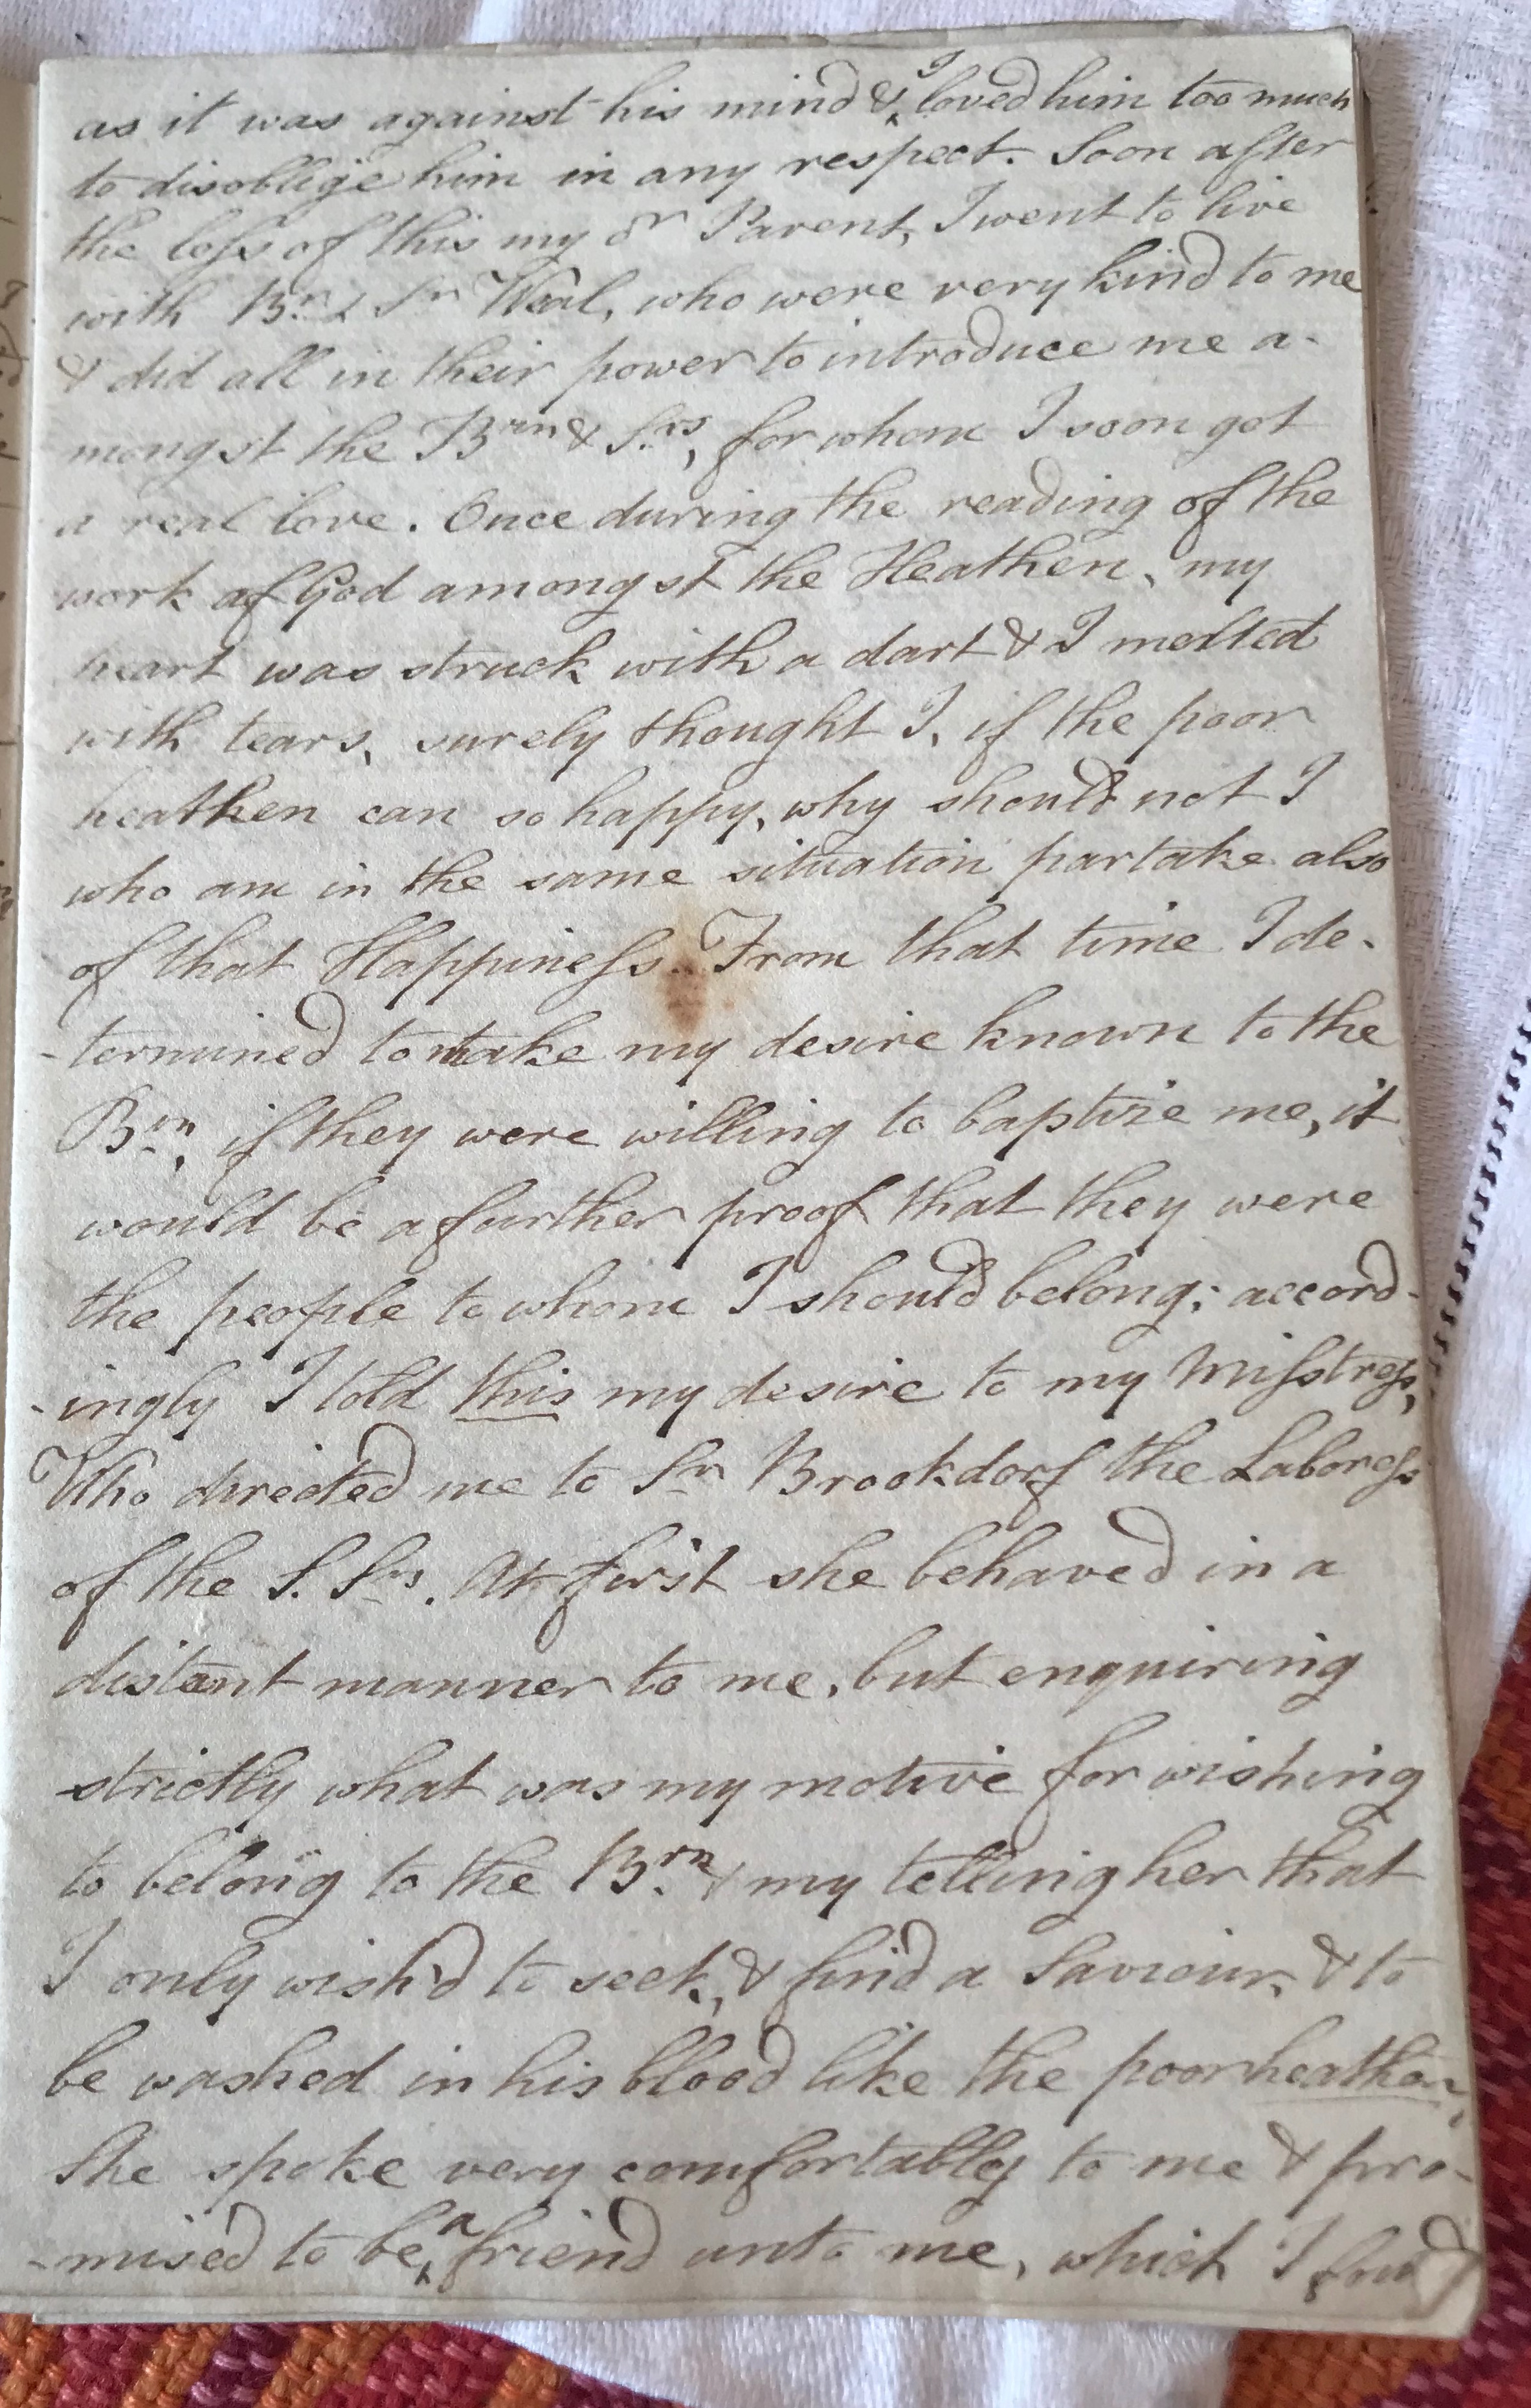 as it was against his mind & I loved him too much
to disoblige him in any respect. Soon after
the loss of this my dr Parent, I went to live
with Br. & Sr Weal, who were very kind to me
& did all in their power to introduce me a-
mongst the Brn & Srs, for whom I soon got
a real love. Once during the reading of the
work of God amongst the Heathen, my
heart was struck with a dart & I melted
with tears, surely thought I, if the poor
heathen can so happy, why should not I
who am in the same situation partake also
of that Happiness. From that time I de-
-termined to make my desire known to the
Brn, if they were willing to baptize me, it
would be a further proof that they were
the people to whom I should belong; accord-
-ingly I told this my desire to my Misstress,
Who directed me to Sr Brookdorf the Laboress
of the S. Srs. At first she behaved in a
distant manner to me, but enquiring
strictly what was my motive for wishing
to belong to the Brn & my telling her that
I only wish'd to seek, & find a Saviour, & to
be washed in his blood like the poor heathen,
She spoke very comfortably to me & pro-
-mised to be a friend unto me, which I